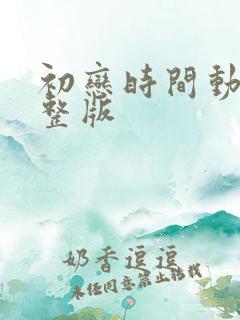 初戀時間動
整版
奶香逗逗
未任同意禁止轉找